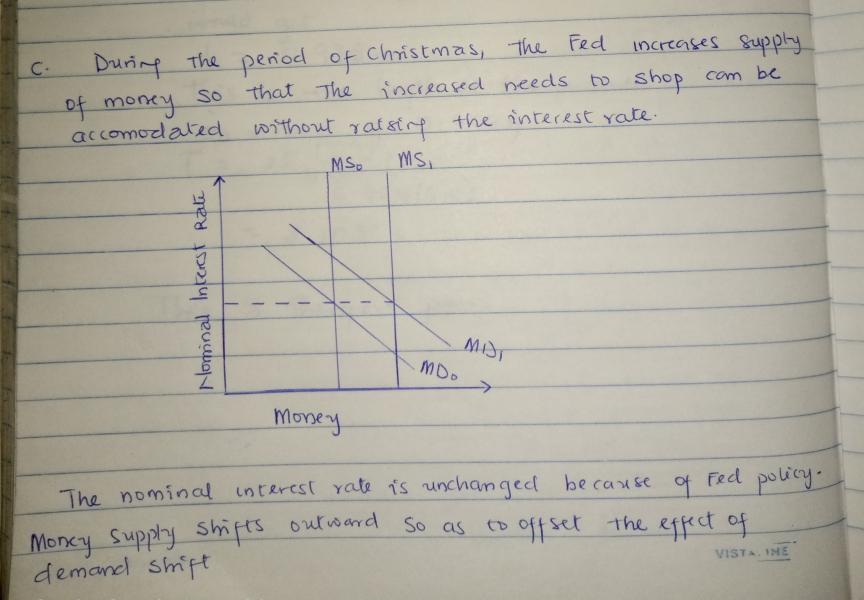 C. During the period of Christmas, the Fed increases supply
of money so that The increased needs to shop can be
accomodated without raising the interest rate.
MS₀ MS₁
Nominal Interest Rate
MD₁
MD₀
Money
The nominal interest rate is unchanged because of Fed policy.
Money supply shifts outward so as to offset the effect of
demand shift